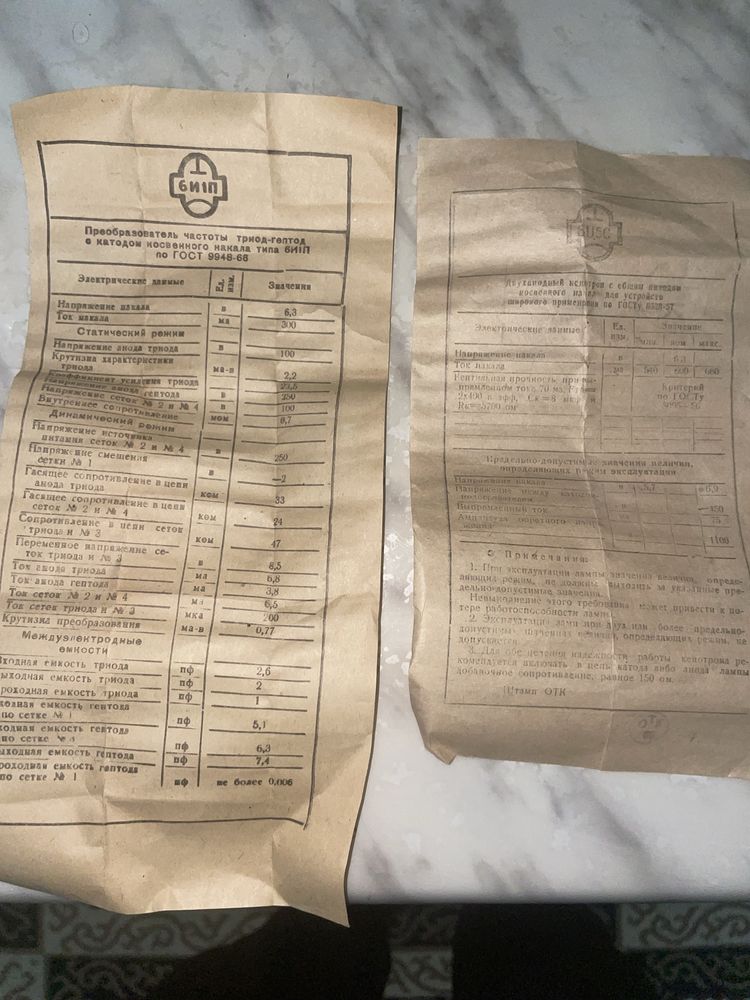 6И1П
Преобразователь частоты триод-гептод
с катодом косвенного накала типа 6И1П
по ГОСТ 9948-66
Электрические данные Ед. изм. Значения
Напряжение накала в 6,3
Ток накала ма 300
Статический режим
Напряжение анода триода в 100
Крутизна характеристики
триода ма-в 2,2
Коэффициент усиления триода 23,5
Напряжение анода гептода в 250
Напряжение сеток № 2 и № 4 в 100
Внутреннее сопротивление мом 0,7
Динамический режим
Напряжение источника
питания сеток № 2 и № 4 в 250
Напряжение смещения
сетки № 1 в —2
Гасящее сопротивление в цепи
анода триода ком 33
Гасящее сопротивление в цепи
сеток № 2 и № 4 ком 24
Сопротивление в цепи сеток
триода и № 3 ком 47
Переменное напряжение се-
ток триода и № 3 в 8,5
Ток анода триода ма 6,8
Ток анода гептода ма 3,8
Ток сеток № 2 и № 4 ма 6,5
Ток сеток триода и № 3 мка 200
Крутизна преобразования ма-в 0,77
Междуэлектродные
емкости
входная емкость триода пф 2,6
выходная емкость триода пф 2
проходная емкость триода пф 1
входная емкость гептода
по сетке № 1 пф 5,1
входная емкость гептода
по сетке № пф 6,3
выходная емкость гептода пф 7,4
проходная емкость гептода
по сетке № 1 пф не более 0,006
6Ц5С
Двуханодный кенотрон с общим катодом
косвенного накала для устройств
широкого применения по ГОСТу
Электрические данные Ед. изм. Значение
мин. ном. макс.
Напряжение накала в 6,3
Ток накала ма 540 600 660
Вентильная прочность при вы-
прямленном токе 70 ма,
2х400 в эфф, Cк=8 мкф и
Rк=5700 ом
Критерий
по ГОСТу
Предельно-допустимые значения величин,
определяющих режим эксплуатации
Напряжение накала в 5,7 6,9
Напряжение между катодом
подогревателем 450
Выпрямленный ток 75
Амплитуда обратного 1100
Примечания:
1. При эксплуатации лампы значения величин, опреде-
ляющих режим, не должны выходить за указанные пре-
дельно-допустимые значения.
Невыполнение этого требования может привести к по-
тере работоспособности лампы.
2. Эксплуатация ламп при двух или более предельно-
допустимых значениях величин, определяющих режим, не
допускается.
3. Для обеспечения надежности работы кенотрона ре-
комендуется включать в цепь катода либо анода лампы
добавочное сопротивление, равное 150 ом.
Штамп ОТК